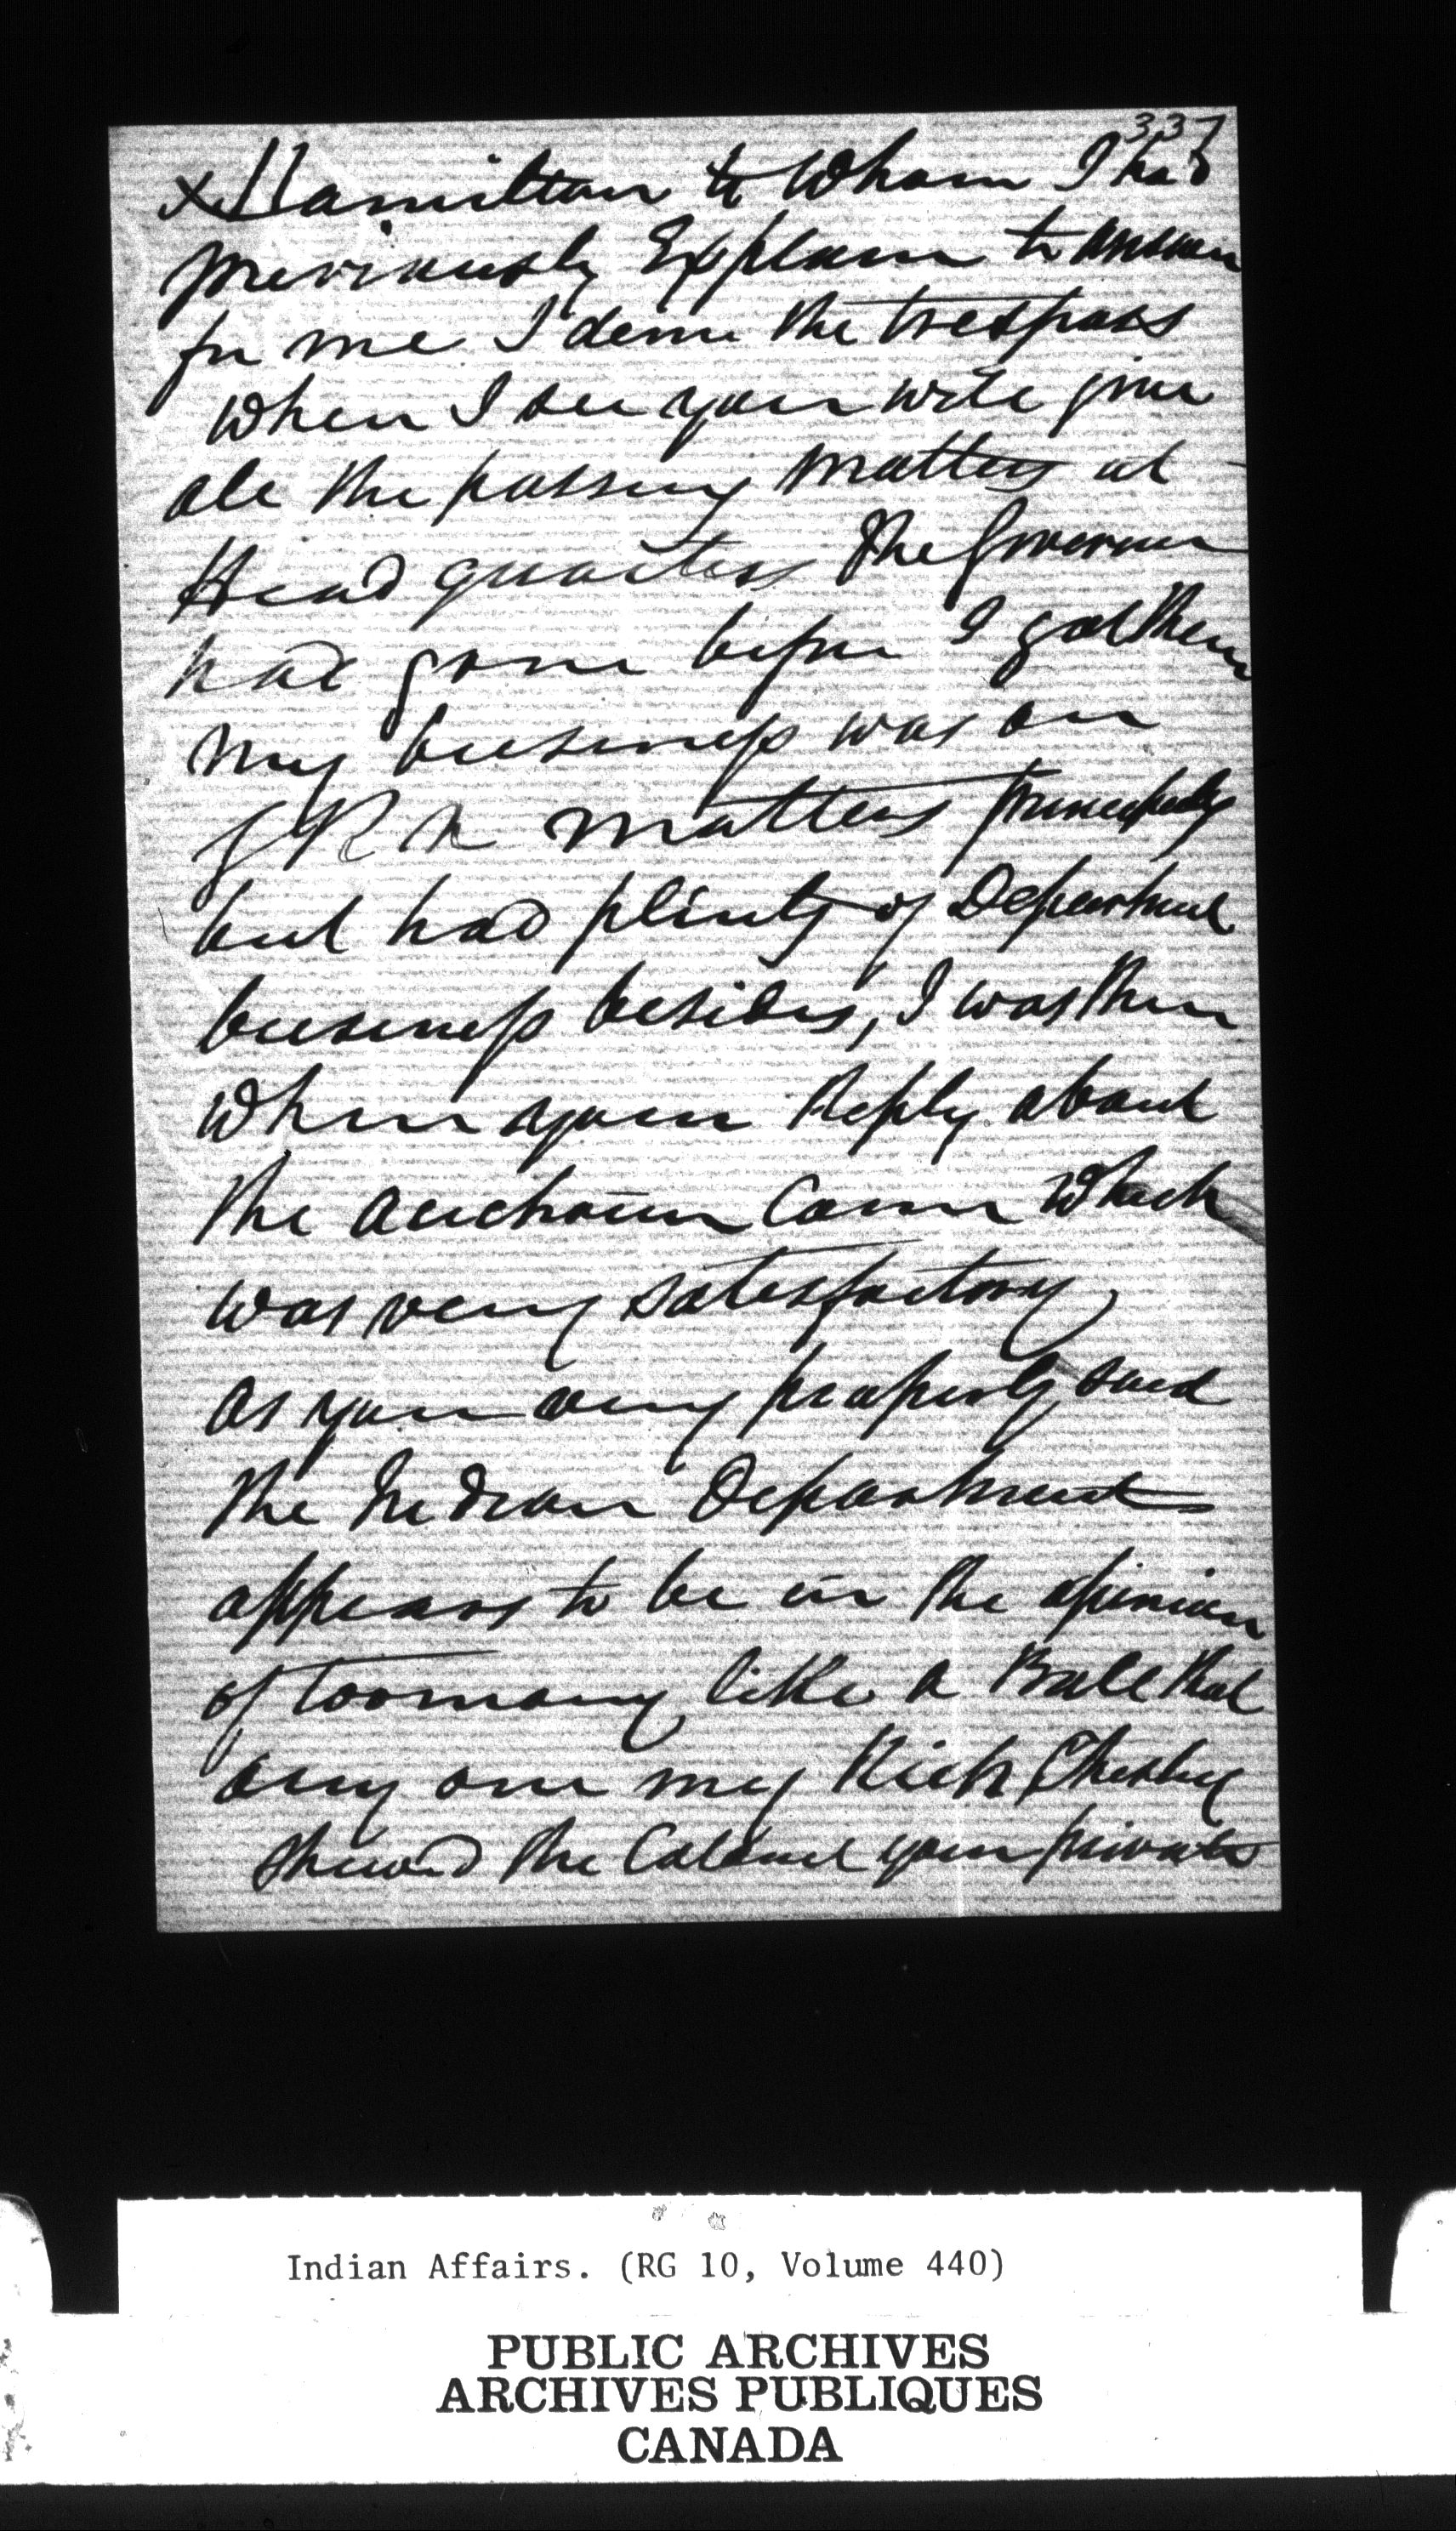 337
x Hamilton to Whom I had
previously Explain to answer
for me I deny the trespass
When I see you will give
all the passing Matters at
Head quarters The Governor
had gone before I got there
My business was on
G R R matters principally
but had plenty of Department
business besides, I was then
When your Reply about
the auction Came Which
was very satisfactory,
as you very properly said
the Indian Department
appears to be in the opinion
of too many like a Ball that
any one may Kick Chesley
shewed the Colonel your private
Indian Affairs. (RG 10, Volume 440)
PUBLIC ARCHIVES
ARCHIVES PUBLIQUES
CANADA